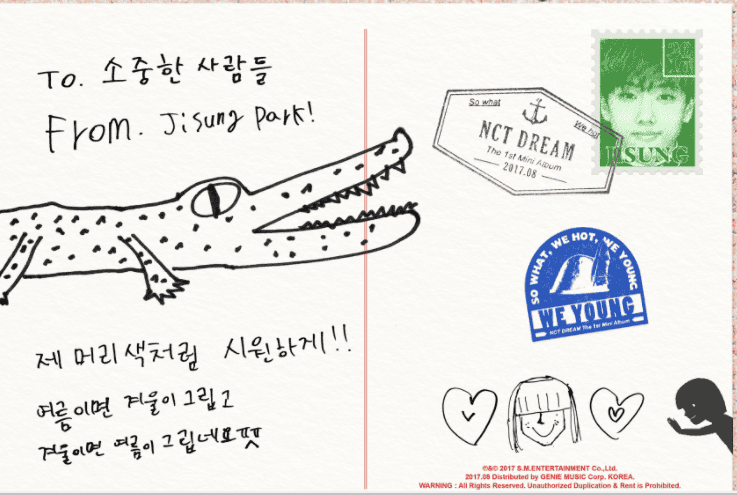 To. 소중한 사람들
From. Jisung Park!
제 머리색처럼 시원하게!!
여름이면 겨울이 그립고
겨울이면 여름이 그립네요
So what
We hot
NCT DREAM
The 1st Mini Album
2017.08
JISUNG
SO WHAT, WE HOT, WE YOUNG
WE YOUNG
NCT DREAM The 1st Mini Album
℗&© 2017 S.M.ENTERTAINMENT Co.,Ltd.
2017.08 Distributed by GENIE MUSIC Corp. KOREA.
WARNING : All Rights Reserved. Unauthorized Duplication & Rest is Prohibited.